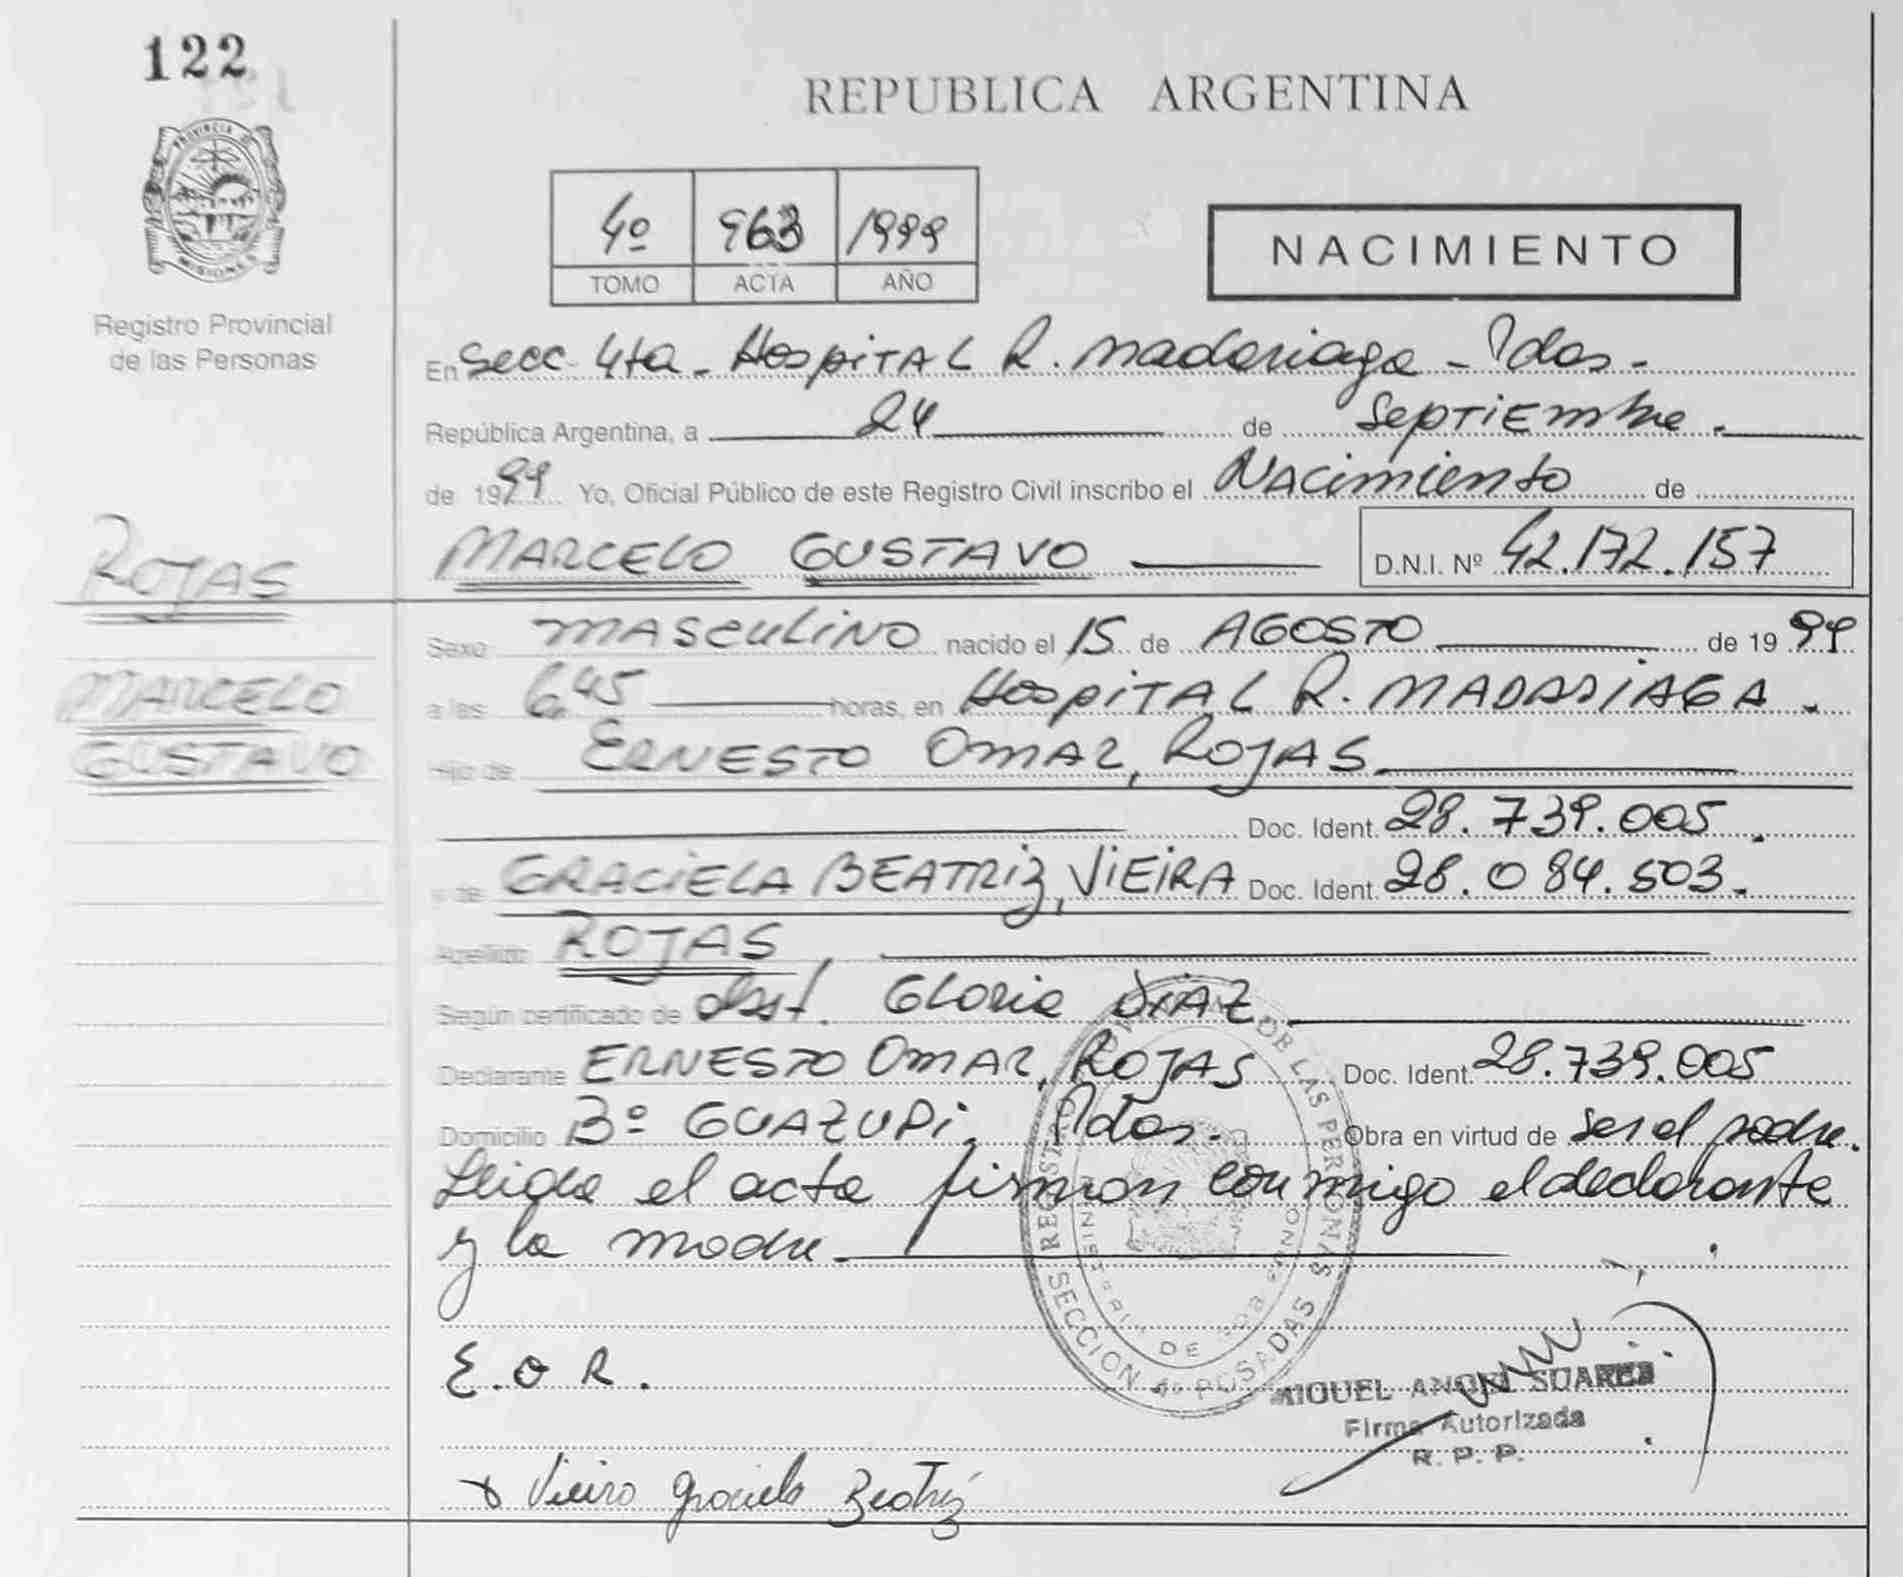 122
PROVINCIA D
MISIONES
Registro Provincial
de las Personas
ROJAS
MARCELO
GUSTAVO
REPUBLICA ARGENTINA
4º 963 1999
TOMO ACTA AÑO
NACIMIENTO
En Secc 4ta - Hospital R. Madariaga - Pdas -
República Argentina, a 24 de Septiembre.
de 1999 Yo, Oficial Público de este Registro Civil inscribo el Nacimiento de
MARCELO GUSTAVO D.N.I. Nº 42.172.157
Sexo MASCULINO nacido el 15 de AGOSTO de 1999
a las 6,45 horas, en Hospital R. MADARIAGA.
Hijo de ERNESTO OMAR, ROJAS
Doc. Ident. 28.739.005.
y de GRACIELA BEATRIZ, VIEIRA Doc. Ident. 28.084.503.
Apellido ROJAS
Según certificado de Obst. Gloria DIAZ
Declarante ERNESTO OMAR, ROJAS Doc. Ident. 28.739.005
Domicilio Bº GUAZUPI, Pdas. Obra en virtud de ser el padre.
Leida el acta firman conmigo el declarante
y la madre
E.O R.
REGISTRO DE LAS PERSONAS
SECCION 4º POSADAS
MIGUEL ANGEL SUAREZ
Firma Autorizada
R. P. P.
Vieira Graciela Beatriz